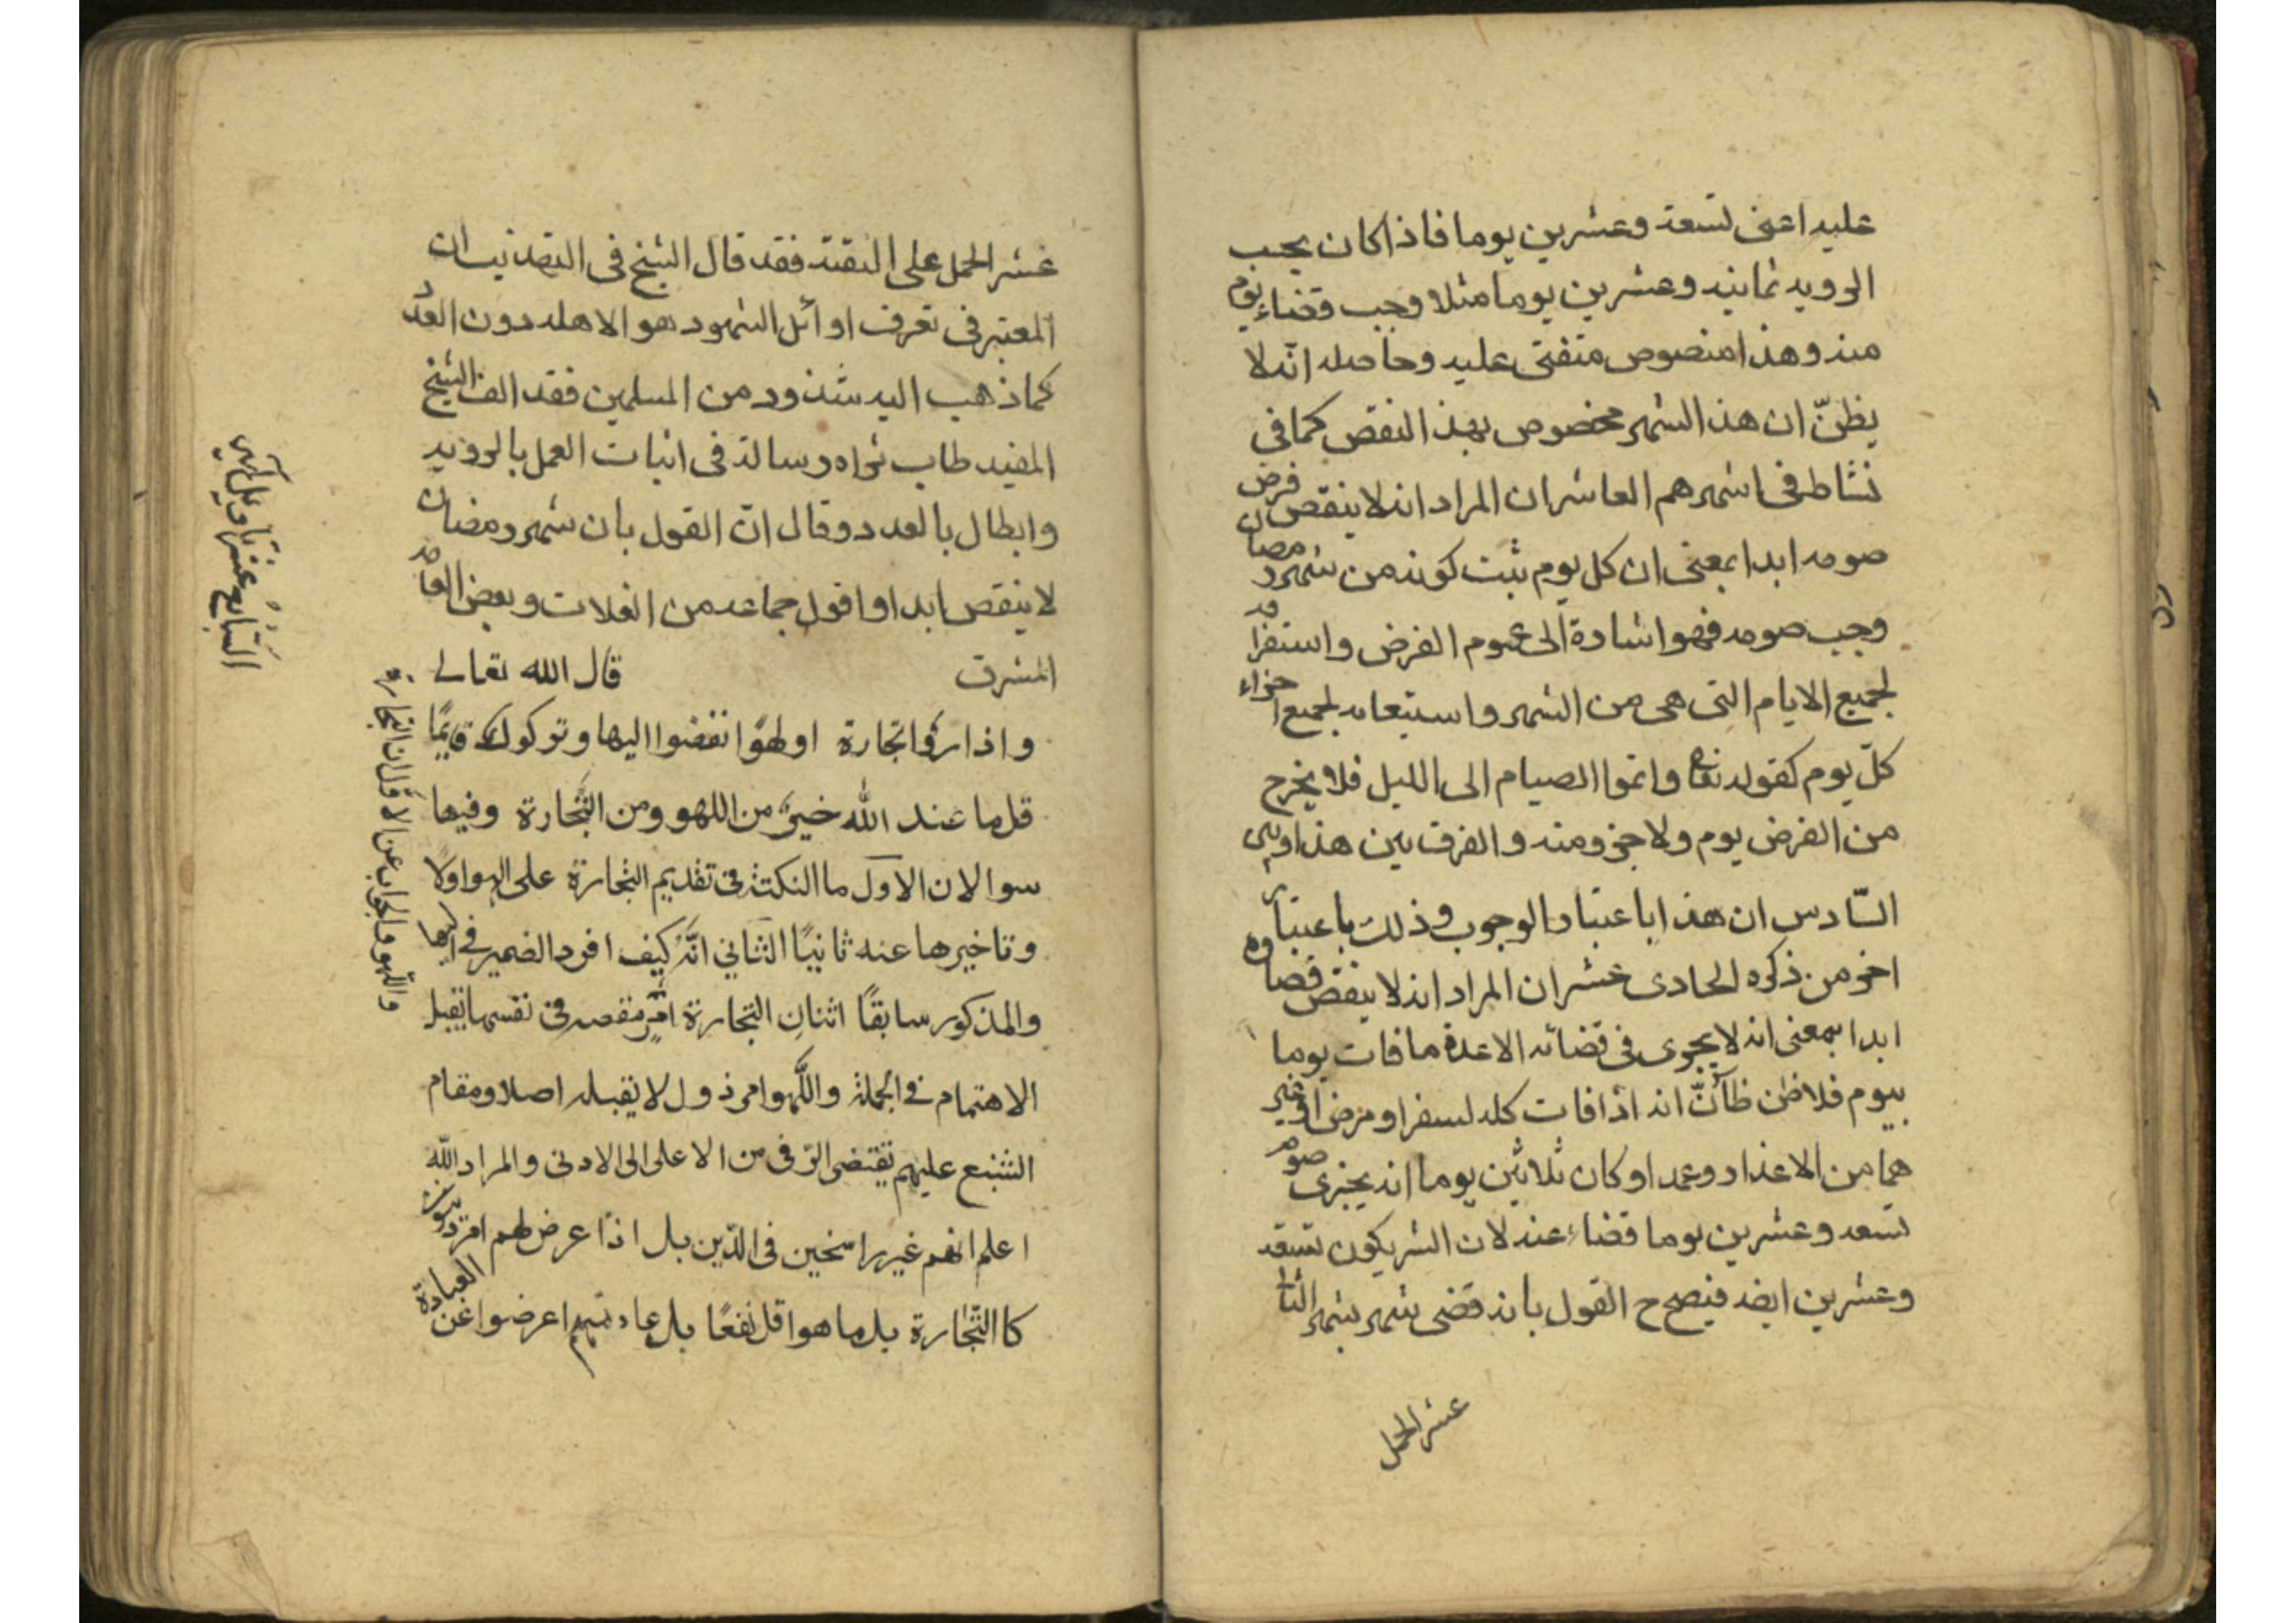 عليه اعنى تسعة وعشرين يوما فاذا كان يجب
الرويه ثمانيه وعشرين يوما مثلا وجب قضاء يوم
منه وهذا منصوص متفق عليه وحاصله انّه لا
يظنّ ان هذا الشهر مخصوص بهذا النقص كما فى
نشاطر فى اشهرهم العاشر ان المراد انه لا ينقص فرض
صومه ابدا بمعنى ان كل يوم ثبت كونه من شهر رمضان
وجب صومه فهو اشارة الى عموم الفرض واستغراقه
لجميع الايام التى هى من الشهر واستيعابه لجميع اجزاء
كلّ يوم كقوله تعالى واتموا الصيام الى الليل فلا يخرج
من الفرض يوم ولا جزو منه والفرق بين هذا وبين
السّادس ان هذا باعتبار الوجوب وذلك باعتبار
اخر من ذكره الحادى عشر ان المراد انه لا ينقص قضاوه
ابدا بمعنى انه لا يجزى فى قضائه الا عدة ما فات يوما
بيوم فلا ظن ظآنّ انه اذا فات كله لسفر او مرض او غير
هما من الاعذار وعمدا وكان ثلاثين يوما انه يجزى صوم
تسعه وعشرين يوما قضاء عنه لان الشر يكون تسعه
وعشرين ايضه فيصح ح القول بانه قضى شهر بشهر الثانى
عشر الحمل
عشر الحمل على التقية فقد قال الشيخ فى التهذيب ان
المعتبر فى تعرف اوائل الشهور هو الاهله دون العدد
كما ذهب اليه شذود من المسلمين فقد الف الشيخ
المفيد طاب ثراه رسالة فى اثبات العمل بالرويه
وابطال بالعدد وقال انّ القول بان شهر رمضان
لا ينقص ابدا وا قول جماعه من الغلات وبعض العامه
المشرق قال الله تعالى
واذا رأوا تجارة او لهوًا انفضوا اليها وتركوك قايمًا
قل ما عند الله خيرٌ من اللهو ومن التّجارة وفيها
سوالان الاول ما النكتة فى تقديم التجارة على الهو اولًا
وتاخيرها عنه ثانيًا الثاني انّه كيف افرد الضمير في اليها
والمذكور سابقًا اثنان التجارة امر مقصد فى نفسها يقبل
الاهتمام فى الجملة واللّهو امر ذول لا يقبله اصلا ومقام
الشنيع عليهم يقتضى الترقى من الاعلى الى الادنى والمراد الله
اعلم انهم غير راسخين فى الدّين بل اذا عرض لهم امر دنيوى
كا التّجارة بل ما هو اقل نفعًا بل عادتهم اعرضوا عن العبادة
واللهو وما الجواب عن الا قل ان التجارة